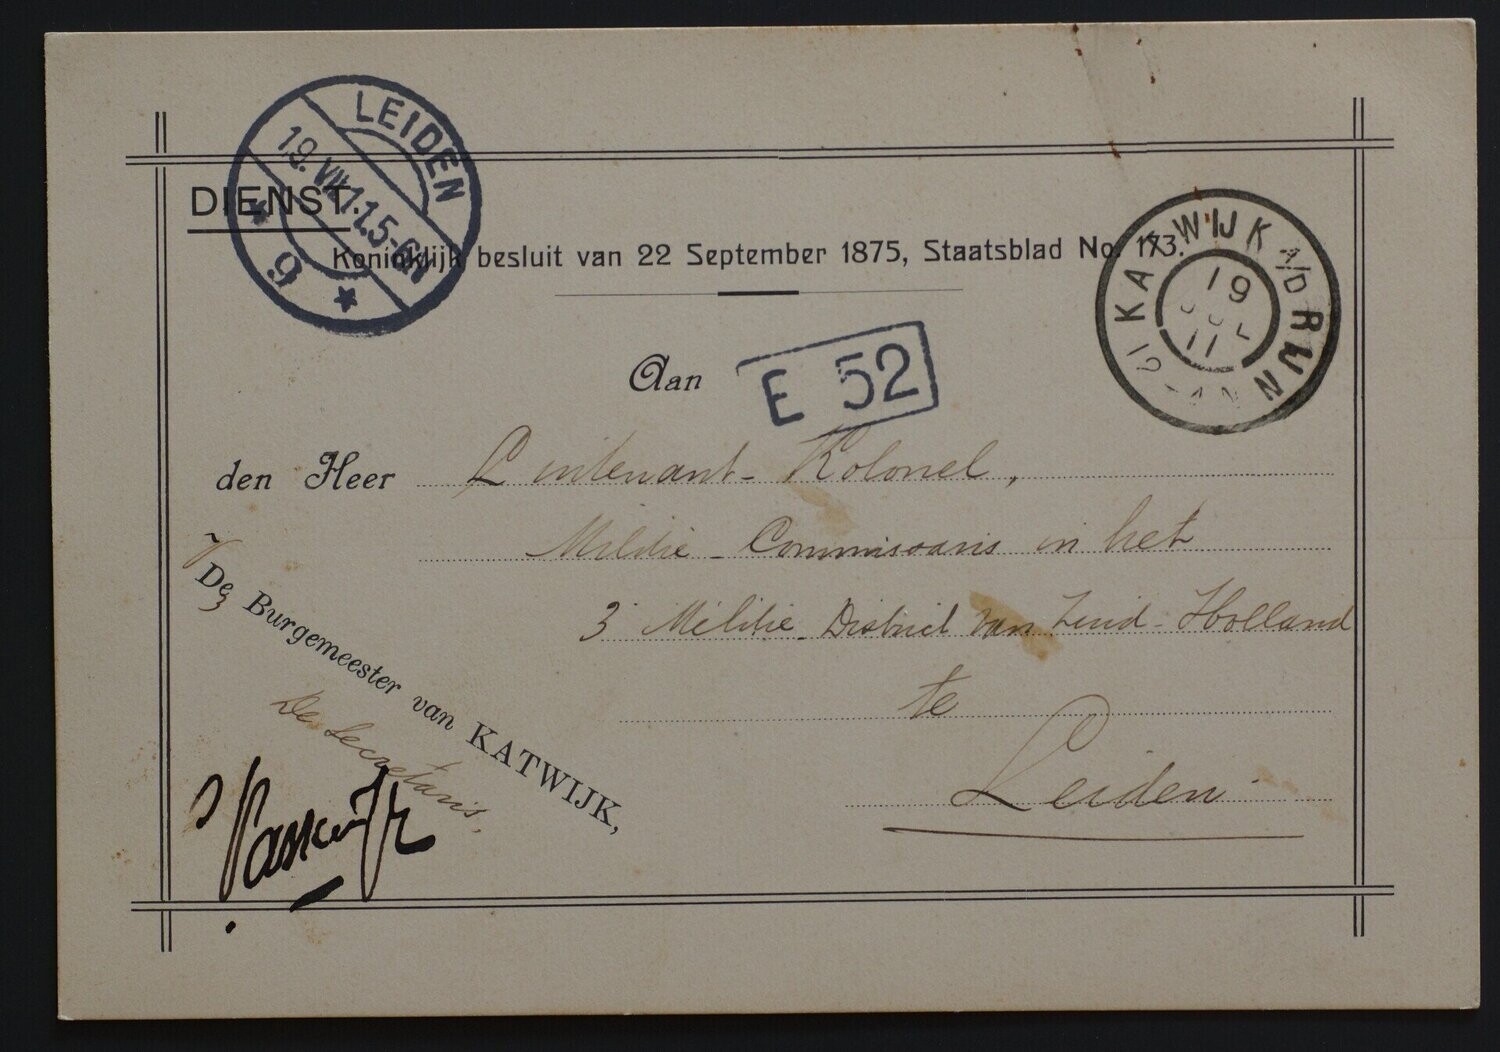 LEIDEN
19.VII.11.5-6N
* 9 *
DIENST.
Koninklijk besluit van 22 September 1875, Staatsblad No. 173.
KATWIJK A/D RIJN
19
JUL
11
Aan
E 52
den Heer Luitenant-Kolonel,
Militie-Commissaris in het
3e Militie-District van Zuid-Holland
te
Leiden
De Burgemeester van KATWIJK,
De Secretaris.